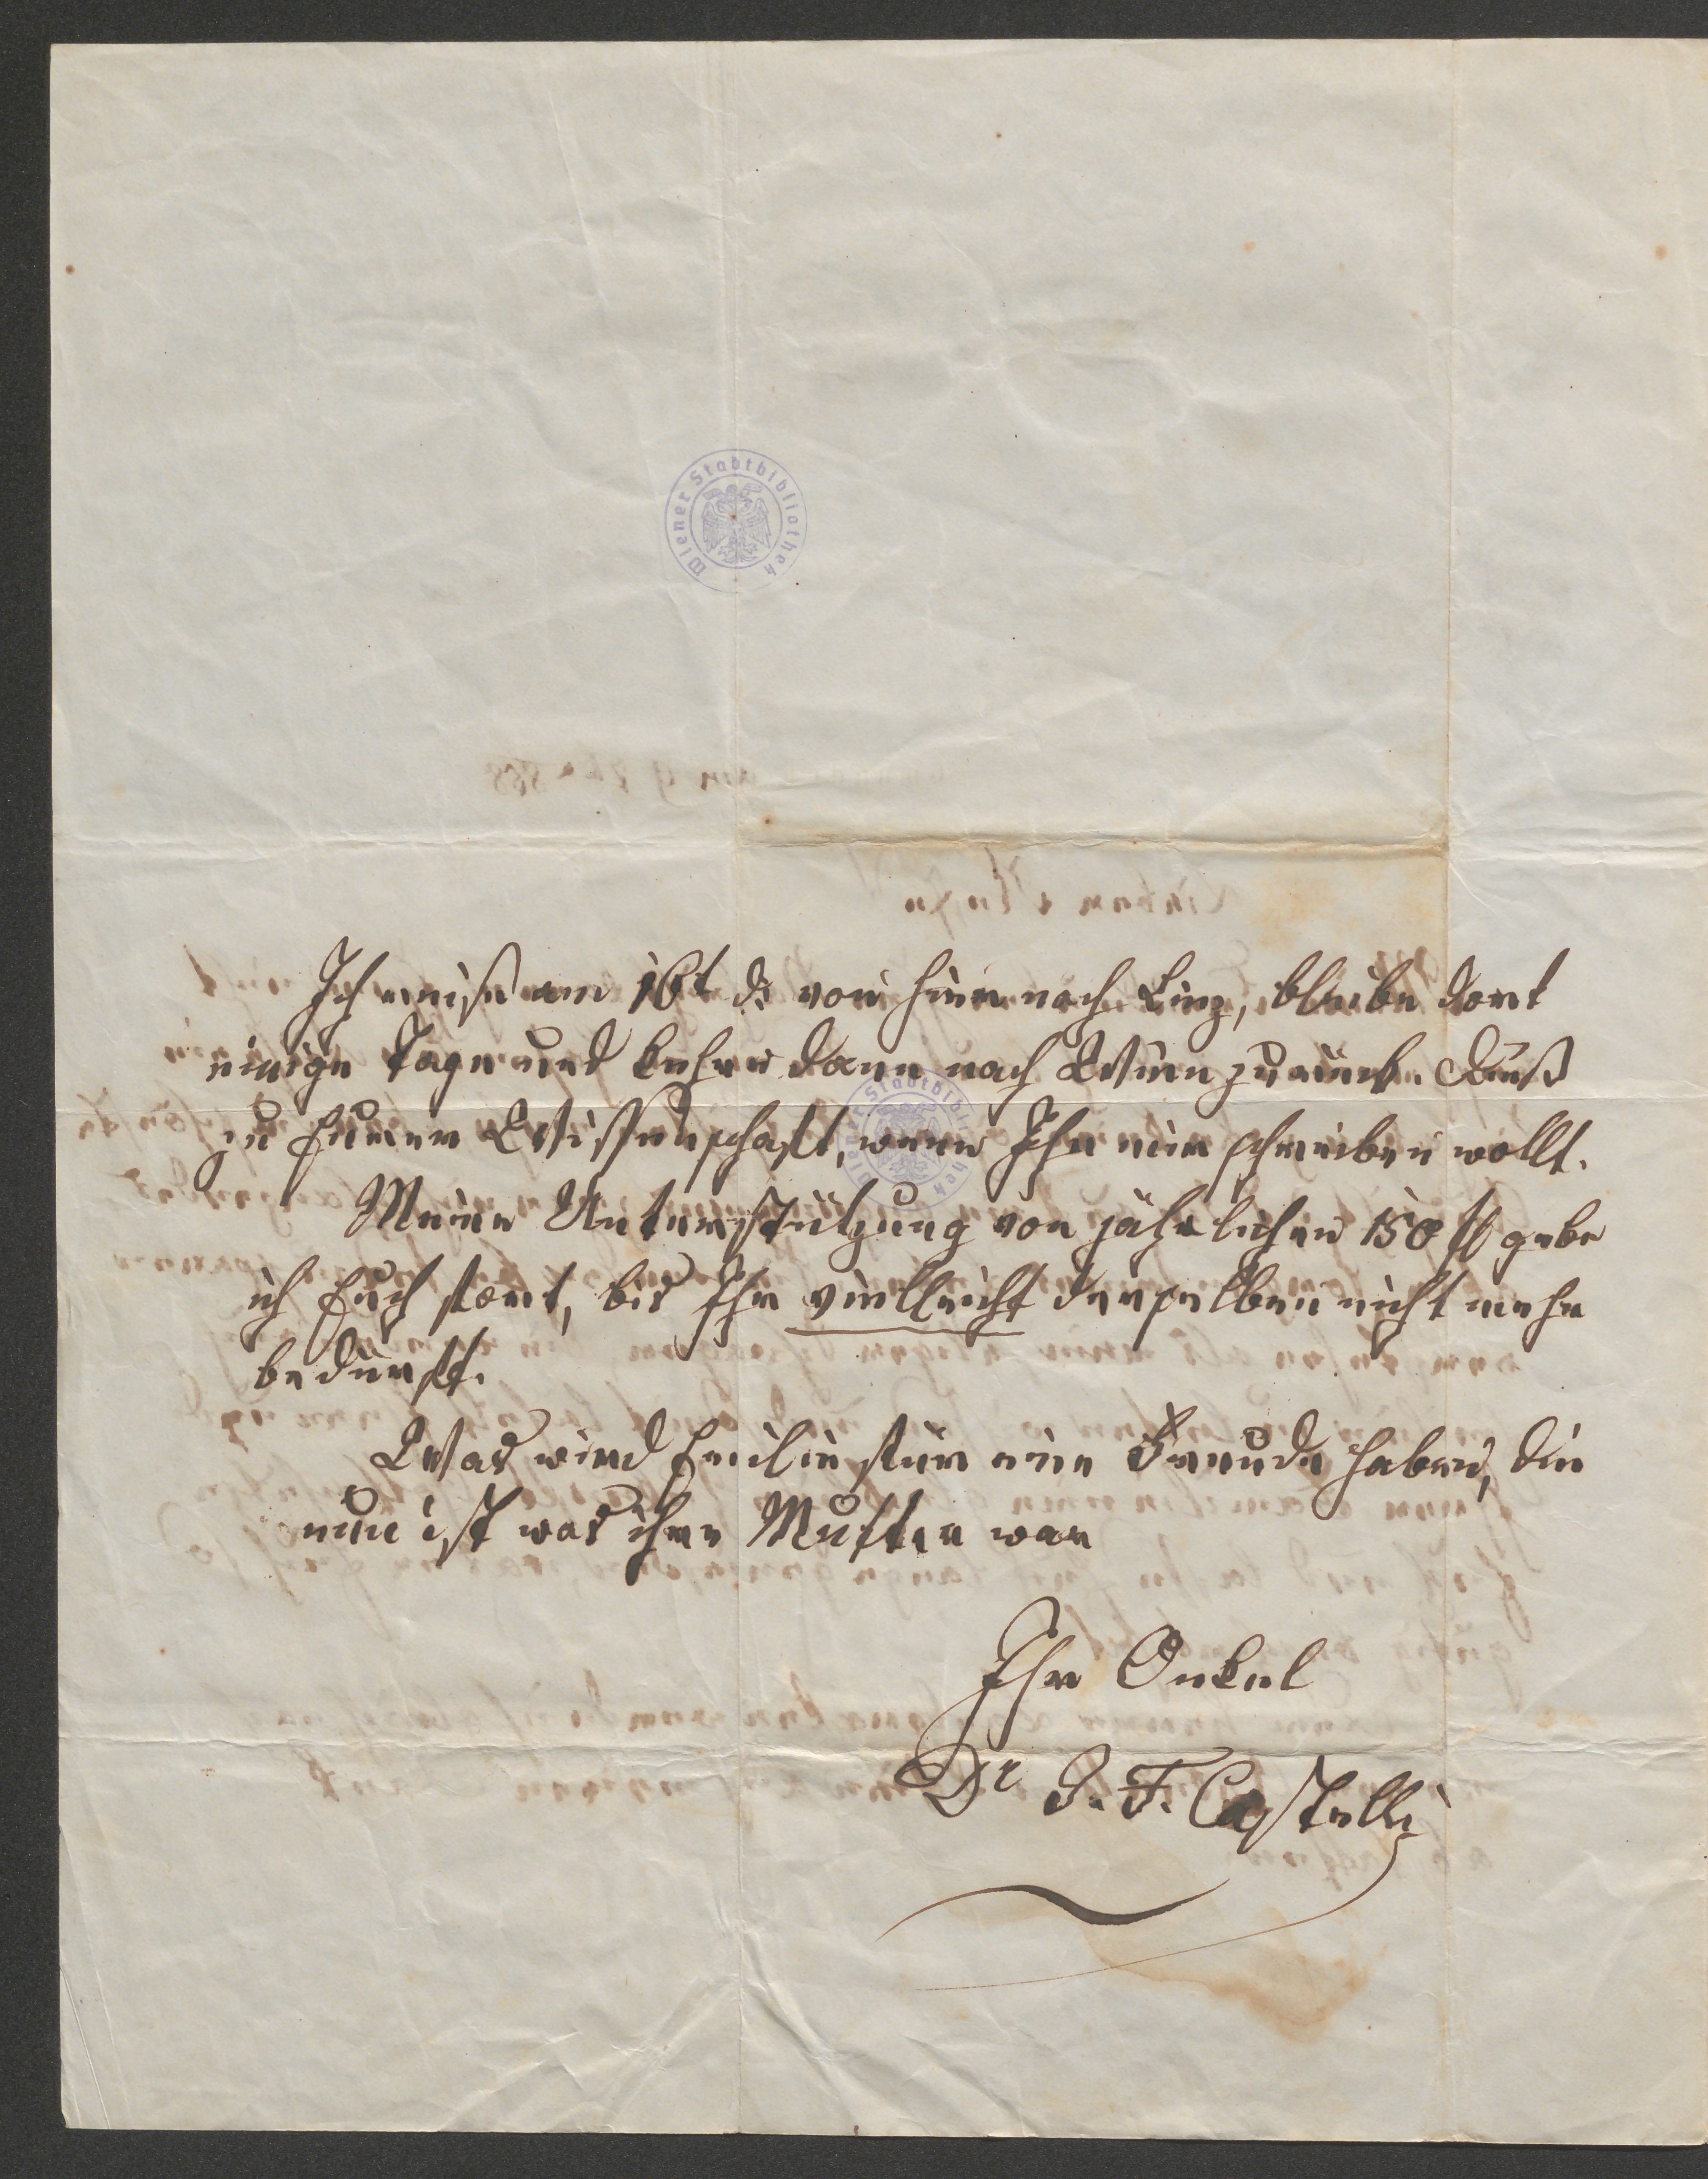 Wiener Stadtbibliothek
Ich reise am 16t d. von hier nach Linz, bleibe dort
einige Tage und kehre dann nach Wien zurück. Dieß
zu Eurer Wissenschaft, wenn Ihr mir schreiben wollt.
Meine Unterstützung von jährlichen 150 fl gebe
ich Euch fort, bis Ihr vielleicht derselben nicht mehr
bedürft.
Was wird Emilie für eine Freude haben, die
nun ist was ihre Mutter war
Ihr Onkel
Dr J. F. Castelli
Wiener Stadtbibliothek